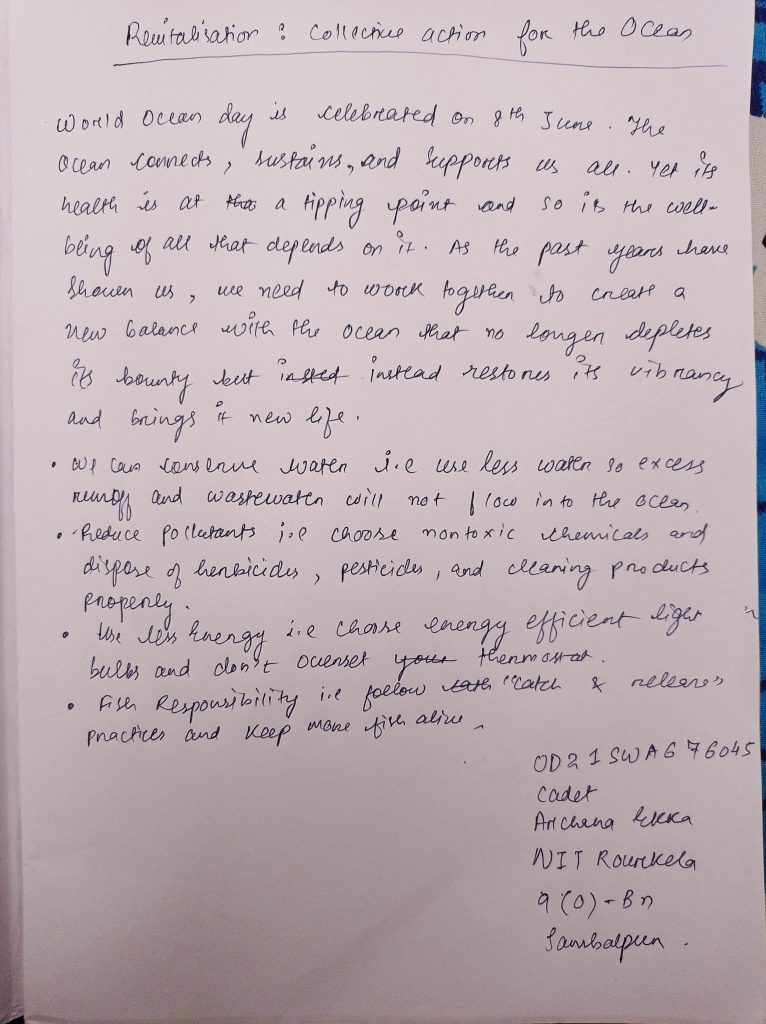 Revitalisation : Collective action for the Ocean
World Ocean day is celebrated on 8th June. The
Ocean connects, sustains, and supports us all. Yet its
health is at the a tipping point and so is the well-
being of all that depends on it. As the past years have
shown us, we need to work together to create a
new balance with the ocean that no longer depletes
its bounty but insted instead restores its vibrancy
and brings it new life.
• We can conserve water i.e use less water so excess
runoff and wastewater will not flow into the ocean.
• Reduce pollutants i.e choose nontoxic chemicals and
dispose of herbicides, pesticides, and cleaning products
properly.
• Use less Energy i.e choose energy efficient light
bulbs and don't overset your thermostat.
• Fish Responsibility i.e follow "catch & release"
practices and keep more fish alive
OD21SWA676045
Cadet
Archana Ekka
NIT Rourkela
9(O)-Bn
Sambalpur.